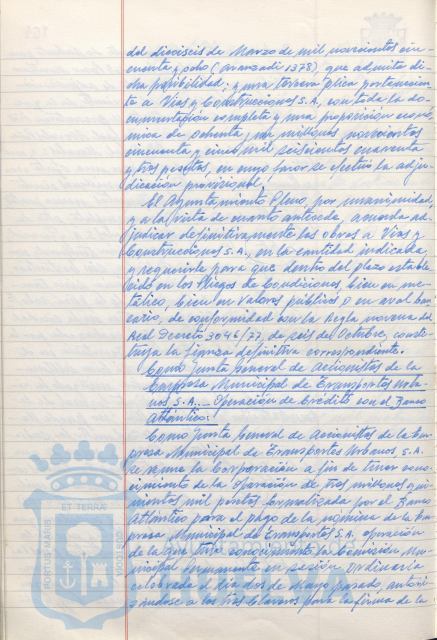 del dieciseis de Marzo de mil novecientos cin-
cuenta y ocho (Aranzadi 1378), que admite di-
cha posibilidad; y una tercera plica pertenecien-
te a Vias y Construcciones S.A., con toda la do-
cumentación completa y una proposición econó-
mica de ochenta y un millones novecientas
cincuenta y cinco mil seiscientas cuarenta
y tres pesetas, en cuyo favor se efectuó la adju-
dicación provisional.
El Ayuntamiento Pleno, por unanimidad,
y a la vista de cuanto antecede, acuerda ad-
judicar definitivamente las obras a Vias y
Construcciones S.A., en la cantidad indicada
y requerirle para que dentro del plazo estable-
cido en los Pliegos de Condiciones, bien en me-
tálico, bien en valores públicos o en aval ban-
cario, de conformidad con la Regla novena del
Real Decreto 3046/77, de seis de Octubre, consti-
tuya la fianza definitiva correspondiente.
Como Junta General de Accionistas de la
Empresa Municipal de Transportes Urba-
nos S.A. Operación de Crédito con el Banco
Atlántico.
Como Junta General de Accionistas de la Em-
presa Municipal de Transportes Urbanos S.A.
se reune la Corporación a fin de tener cono-
cimiento de la Operación de tres millones qui-
nientas mil pesetas formalizada por el Banco
Atlántico para el pago de la nómina de la Em-
presa Municipal de Transportes S.A., operación
de la que tuvo conocimiento la Comisión Mu-
nicipal Permanente en sesión Ordinaria
celebrada el día dos de Mayo pasado, autori-
zándose a los tres Claveros para la firma de la
ET TERRA
PORTUS MARIS
CUSTODIA